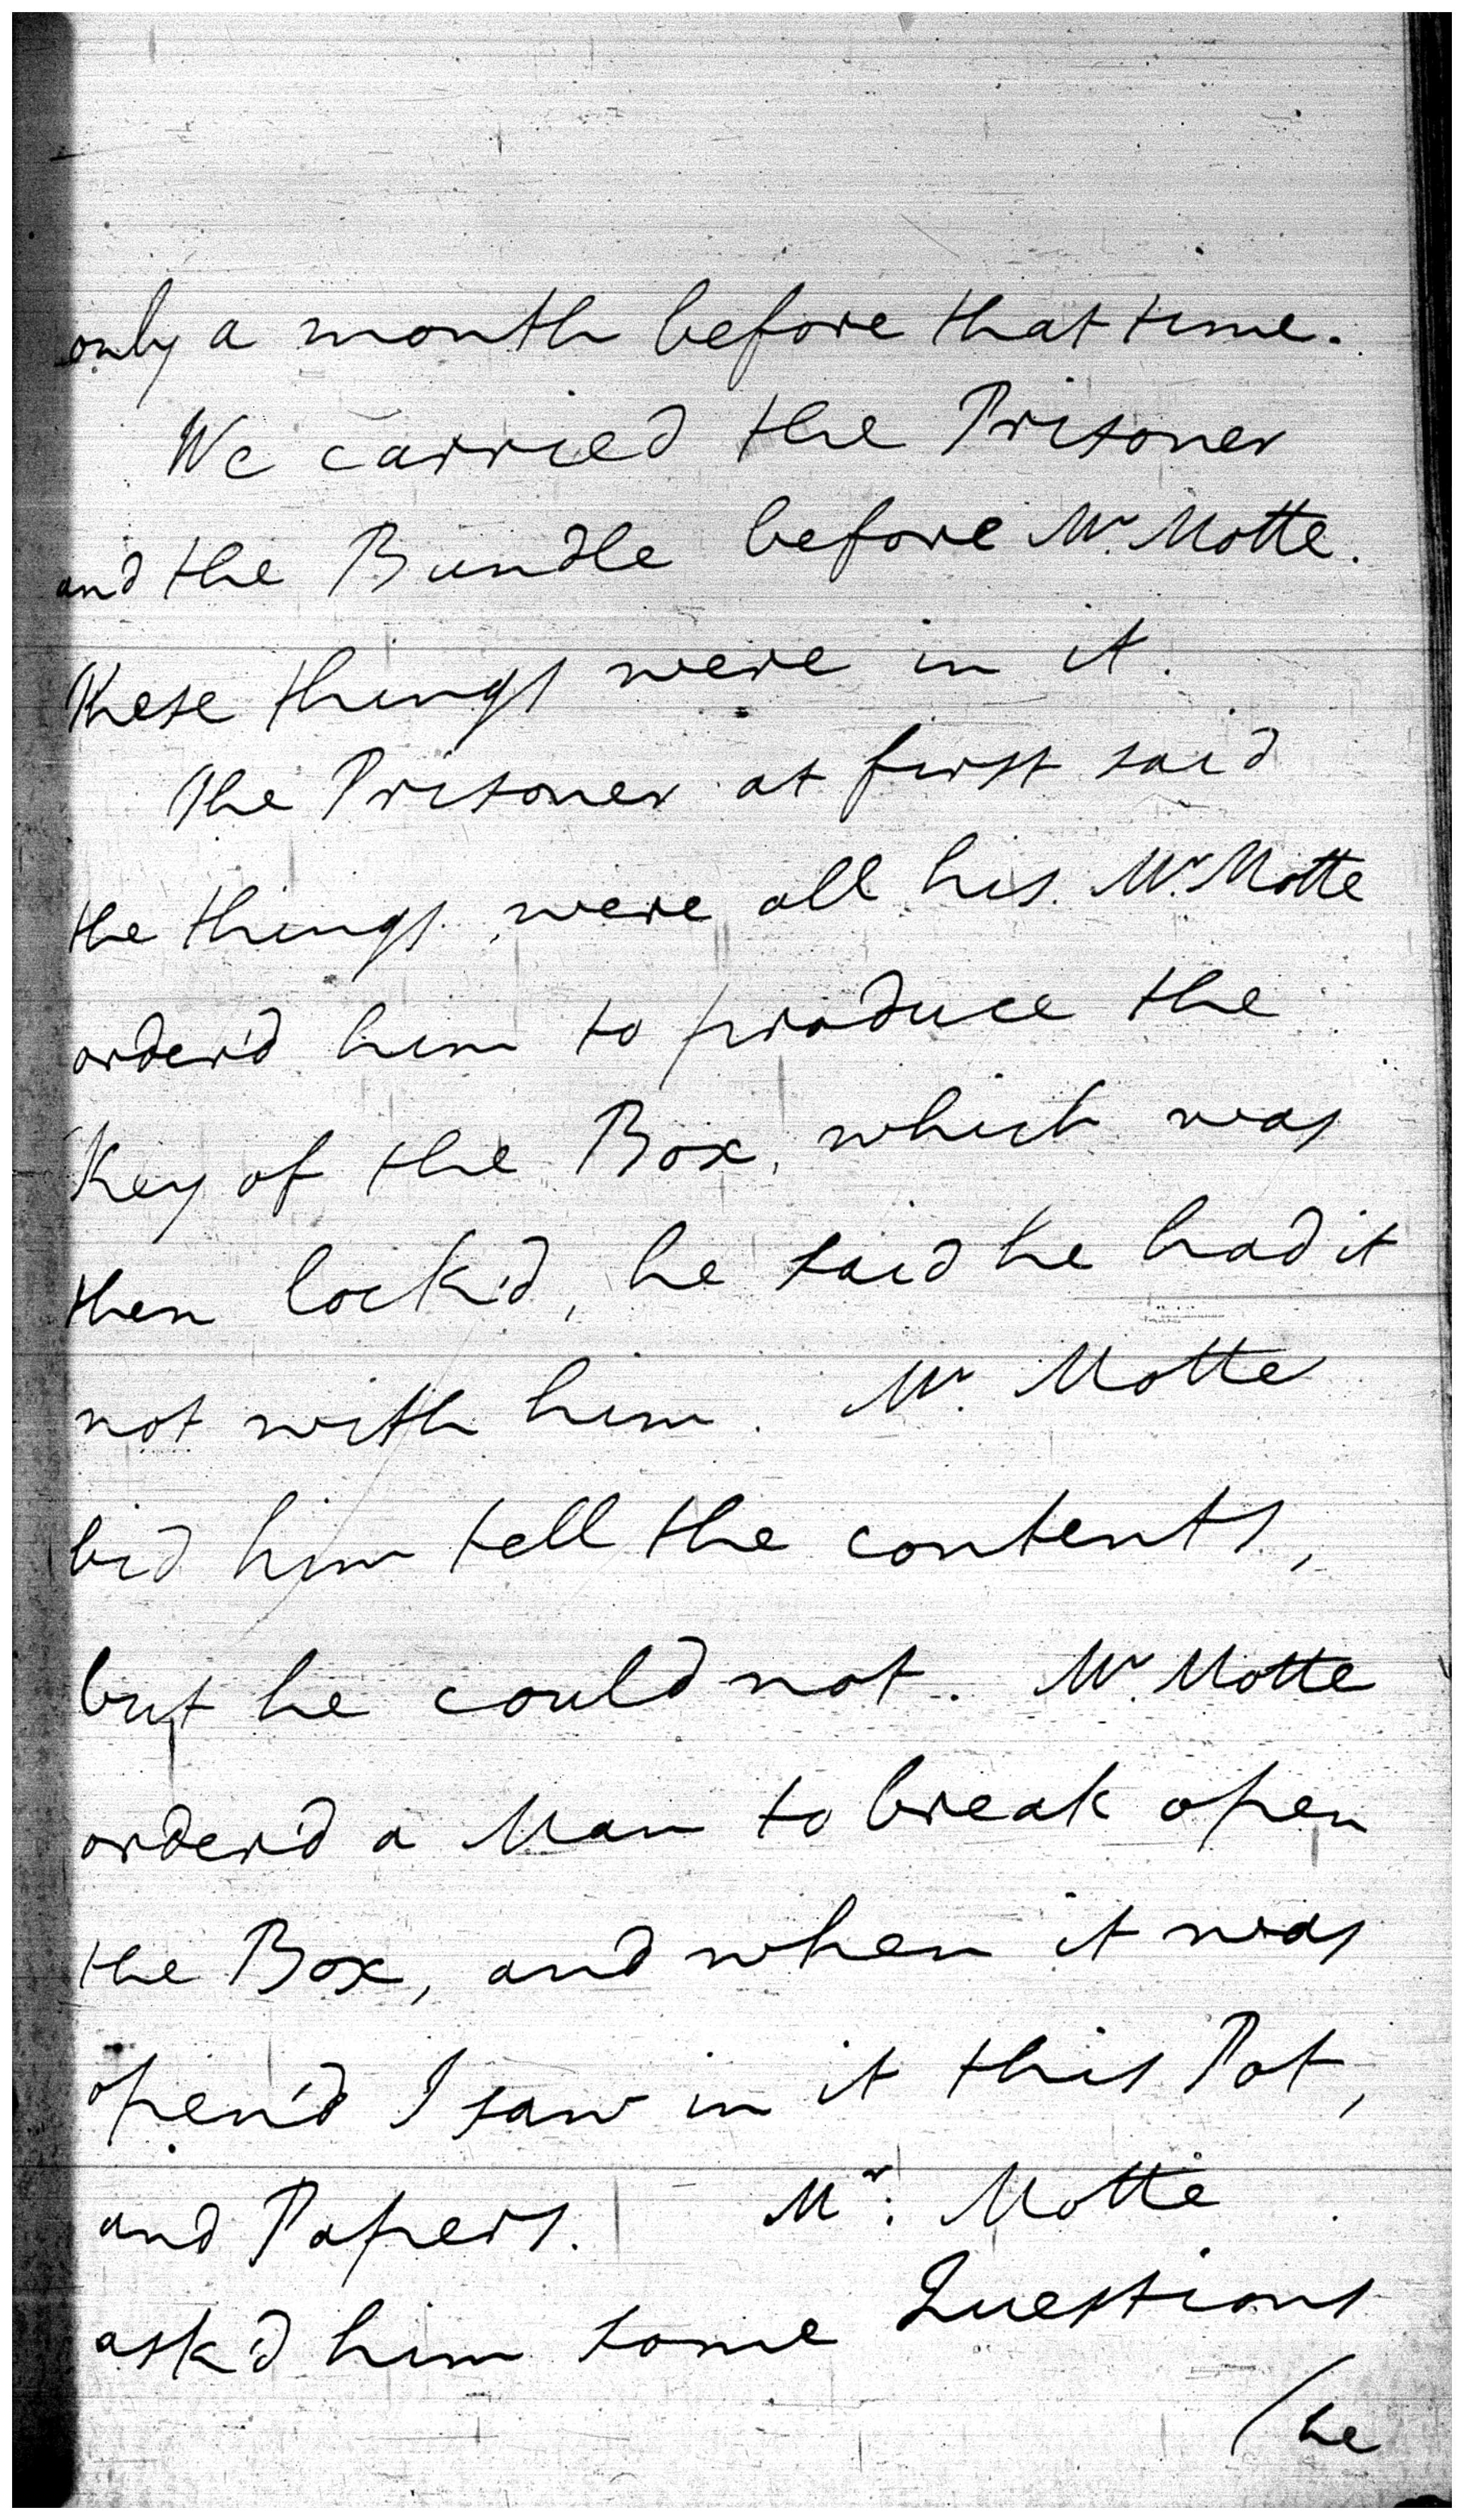 only a month before that time.
We carried the Prisoner
and the Bundle before Mr. Motte.
These things were in it.
The Prisoner at first said
the things were all his. Mr. Motte
order'd him to produce the
Key of the Box, which was
then lock'd, he said he had it
not with him. Mr. Motte
bid him tell the contents,
but he could not. Mr. Motte
order'd a Man to break open
the Box, and when it was
open'd I saw in it this Pot,
and Papers. Mr: Motte
ask'd him some Questions
(he